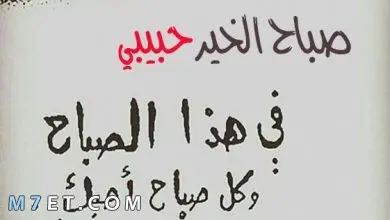 صباح الخير حبيبي
في هذا الصباح
وكل صباح أحبك
M7ET.COM